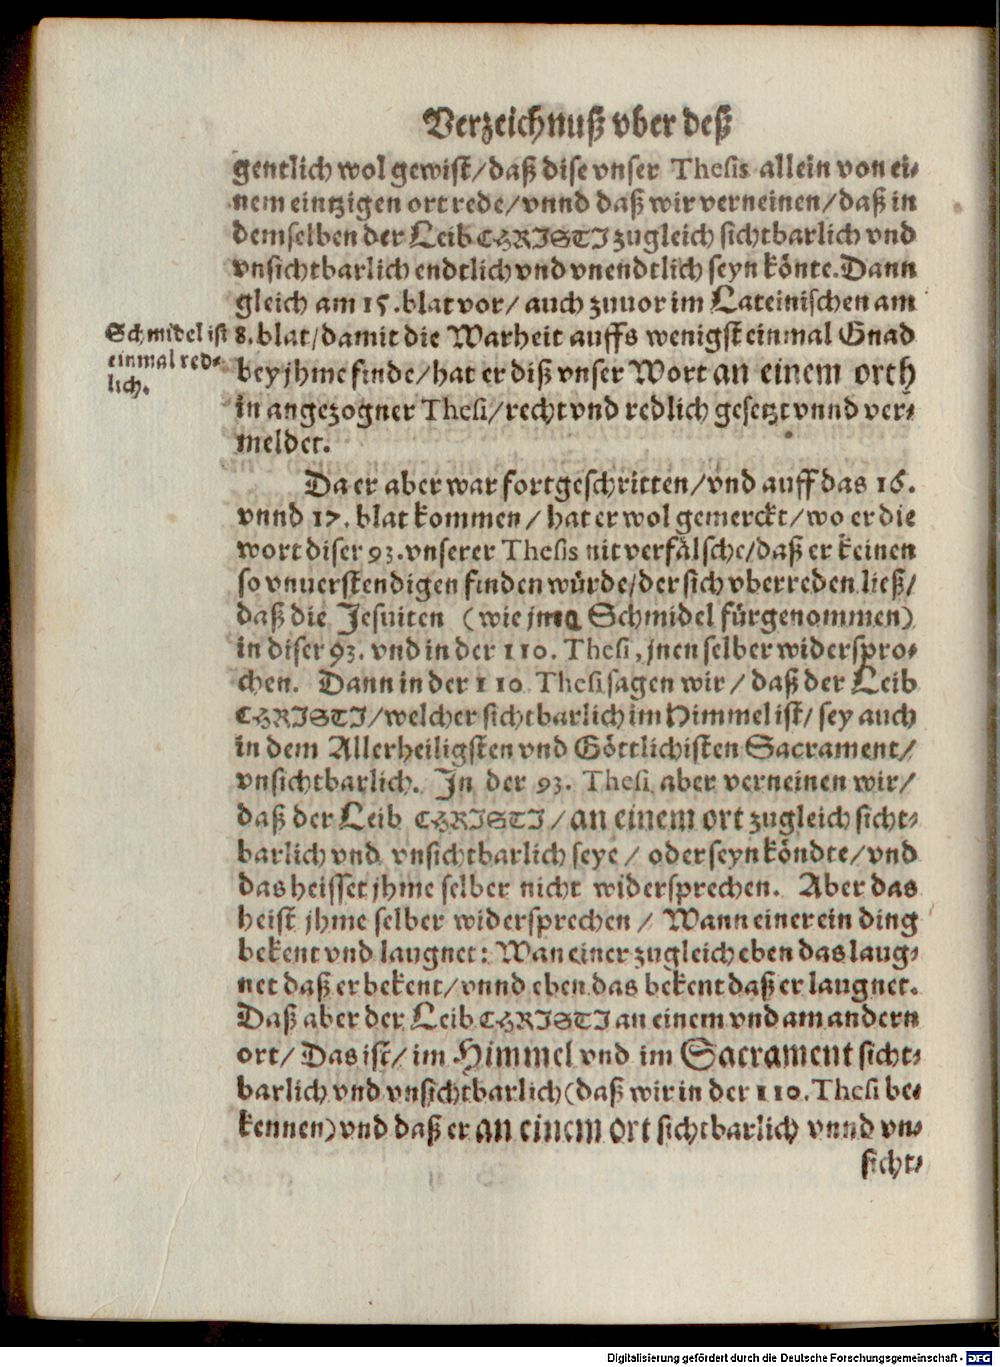 Verzeichnuß vber deß
gentlich wol gewist/daß dise vnser Thesis allein von ei-
nem eintzigen ort rede/vnnd daß wir verneinen/daß in
demselben der Leib CHRISTI zugleich sichtbarlich vnd
vnsichtbarlich endtlich vnd vnendtlich seyn könte. Dann
gleich am 15. blat vor/ auch zuuor im Lateinischen am
Schmidel ist
einmal red-
lich.
8. blat/damit die Warheit auffs wenigst einmal Gnad
bey jhme finde/hat er diß vnser Wort an einem orth
in angezogner Thesi/recht vnd redlich gesetzt vnnd ver-
meldet.
Da er aber war fortgeschritten/vnd auff das 16.
vnnd 17. blat kommen/ hat er wol gemerckt/wo er die
wort diser 93. vnserer Thesis nit verfälsche/daß er keinen
so vnuerstendigen finden würde/der sich vberreden ließ/
daß die Jesuiten (wie jmq Schmidel fürgenommen)
in diser 93. vnd in der 110. Thesi, jnen selber widerspro-
chen. Dann in der 110 Thesi sagen wir/ daß der Leib
CHRISTI/welcher sichtbarlich im Himmel ist/ sey auch
in dem Allerheiligsten vnd Göttlichisten Sacrament/
vnsichtbarlich. In der 93. Thesi aber verneinen wir/
daß der Leib CHRISTI/an einem ort zugleich sicht-
barlich vnd vnsichtbarlich seye/ oder seyn köndte/vnd
das heisset jhme selber nicht widersprechen. Aber das
heist jhme selber widersprechen/ Wann einer ein ding
bekent vnd laugnet: Wan einer zugleich eben das laug-
net daß er bekent/vnnd eben das bekent daß er laugnet.
Daß aber der Leib CHRISTI an einem vnd am andern
ort/ Das ist/ im Himmel vnd im Sacrament sicht-
barlich vnd vnsichtbarlich (daß wir in der 110. Thesi be-
kennen) vnd daß er an einem ort sichtbarlich vnnd vn-
sicht-
Digitalisierung gefördert durch die Deutsche Forschungsgemeinschaft - DFG